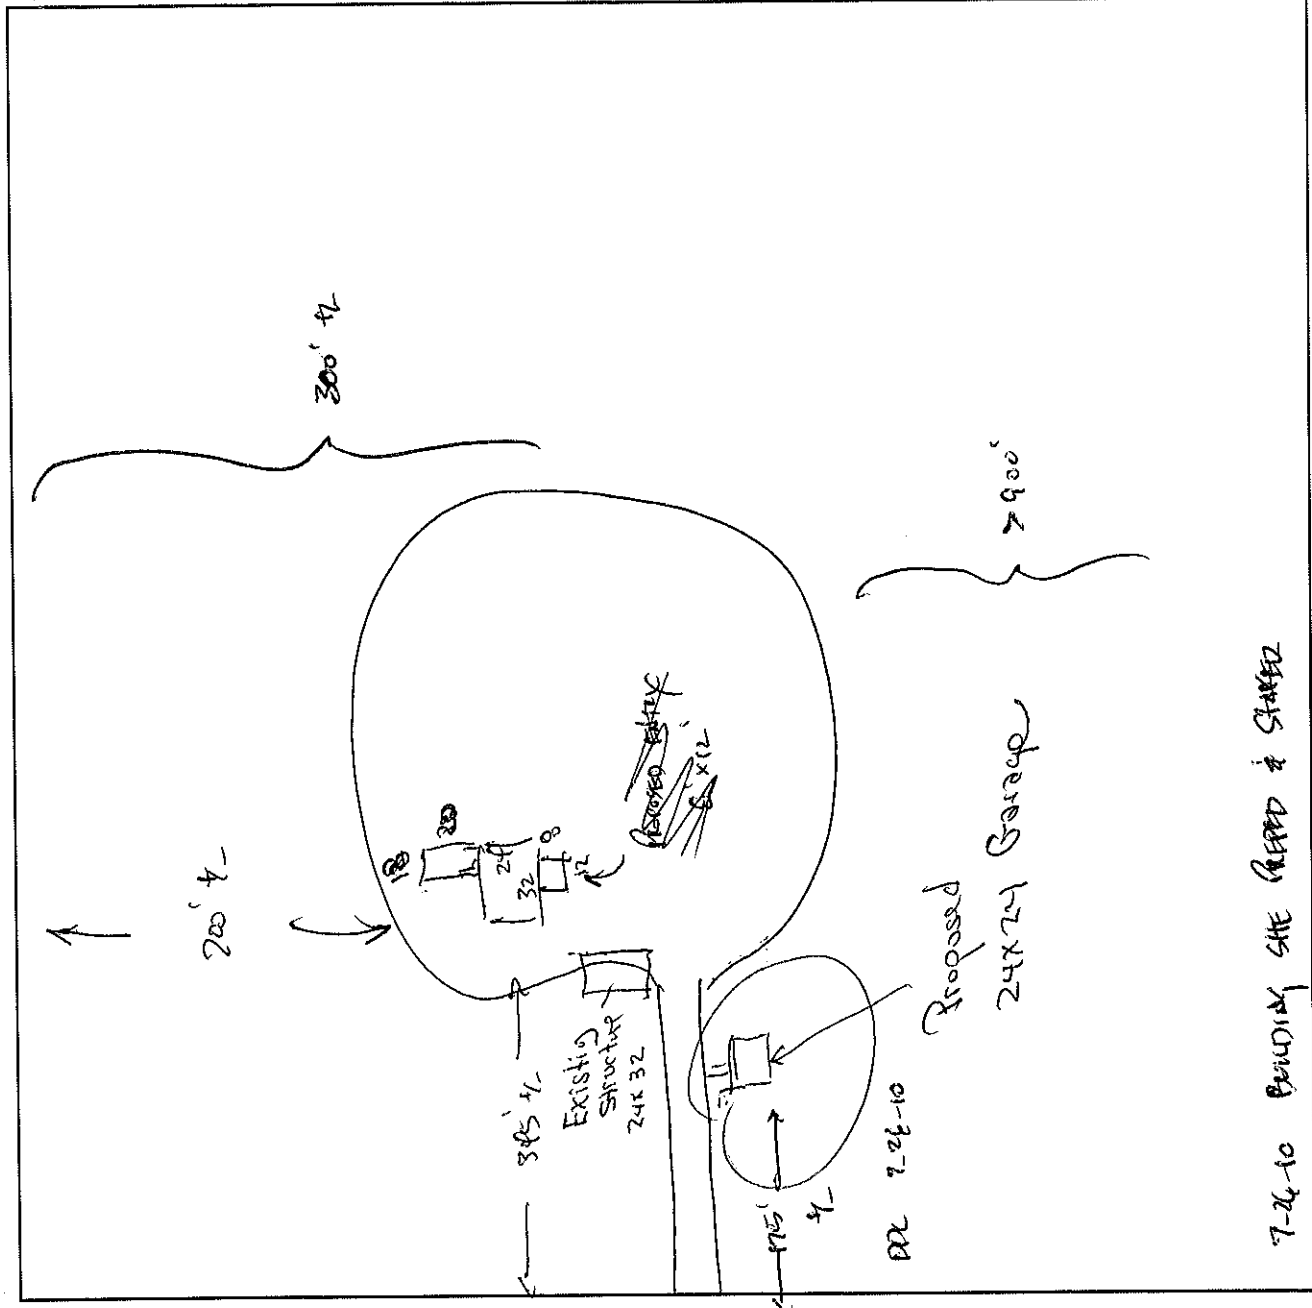 300' +/-
200' +/-
20
24
32
8
12
PROPOSED ENTRY
8' x 12'
345' +/-
Existing
Structure
24x32
>900'
Proposed
24x24 Garage
175'
+/-
7-26-10 BUILDING SITE PREPPED & STAKED